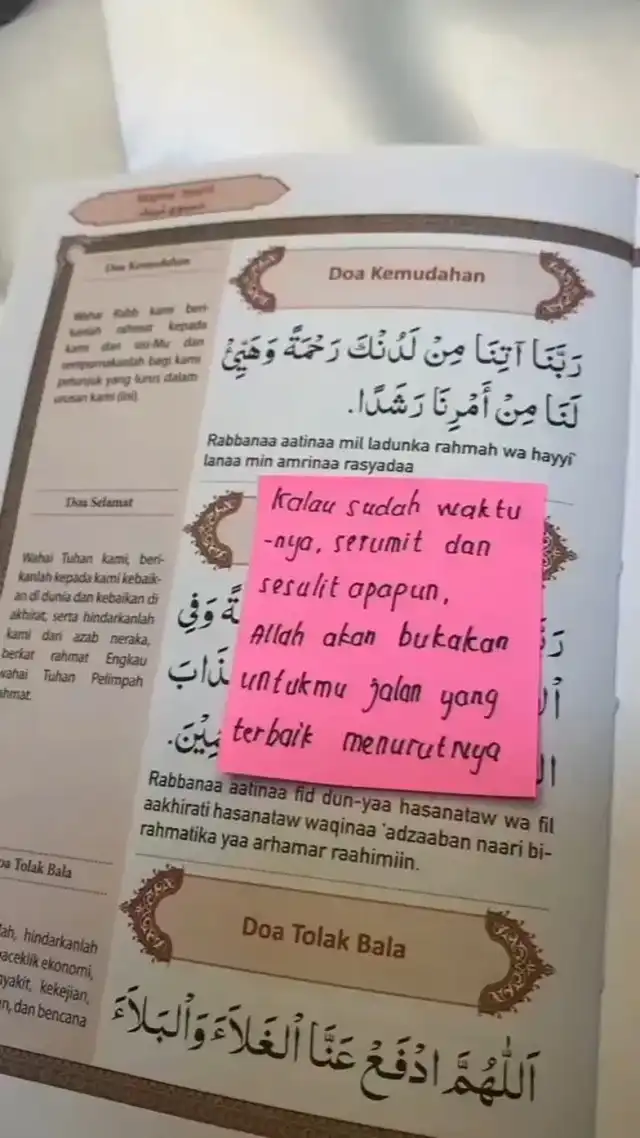 Doa Kemudahan
Wahai Rabb kami beri-
kanlah rahmat kepada
kami dari sisi-Mu dan
sempurnakanlah bagi kami
petunjuk yang lurus dalam
urusan kami (ini).
Doa Kemudahan
رَبَّنَا آتِنَا مِنْ لَدُنْكَ رَحْمَةً وَهَيِّئْ
لَنَا مِنْ أَمْرِنَا رَشَدًا.
Rabbanaa aatinaa mil ladunka rahmah wa hayyi'
lanaa min amrinaa rasyadaa
Doa Selamat
Wahai Tuhan kami, beri-
kanlah kepada kami kebaik-
an di dunia dan kebaikan di
akhirat, serta hindarkanlah
kami dari azab neraka,
berkat rahmat Engkau
wahai Tuhan Pelimpah
ahmat.
Kalau sudah waktu
-nya, serumit dan
sesulit apapun,
Allah akan bukakan
untukmu jalan yang
terbaik menurutNya
وَفِي
Rabbanaa aatinaa fid dun-yaa hasanataw wa fil
aakhirati hasanataw waqinaa 'adzaaban naari bi-
rahmatika yaa arhamar raahimiin.
oa Tolak Bala
lah, hindarkanlah
aceklik ekonomi,
nyakit, kekejian,
n, dan bencana
Doa Tolak Bala
اَللّٰهُمَّ ادْفَعْ عَنَّا ٱلْغَلَاءَ وَٱلْبَلَاءَ